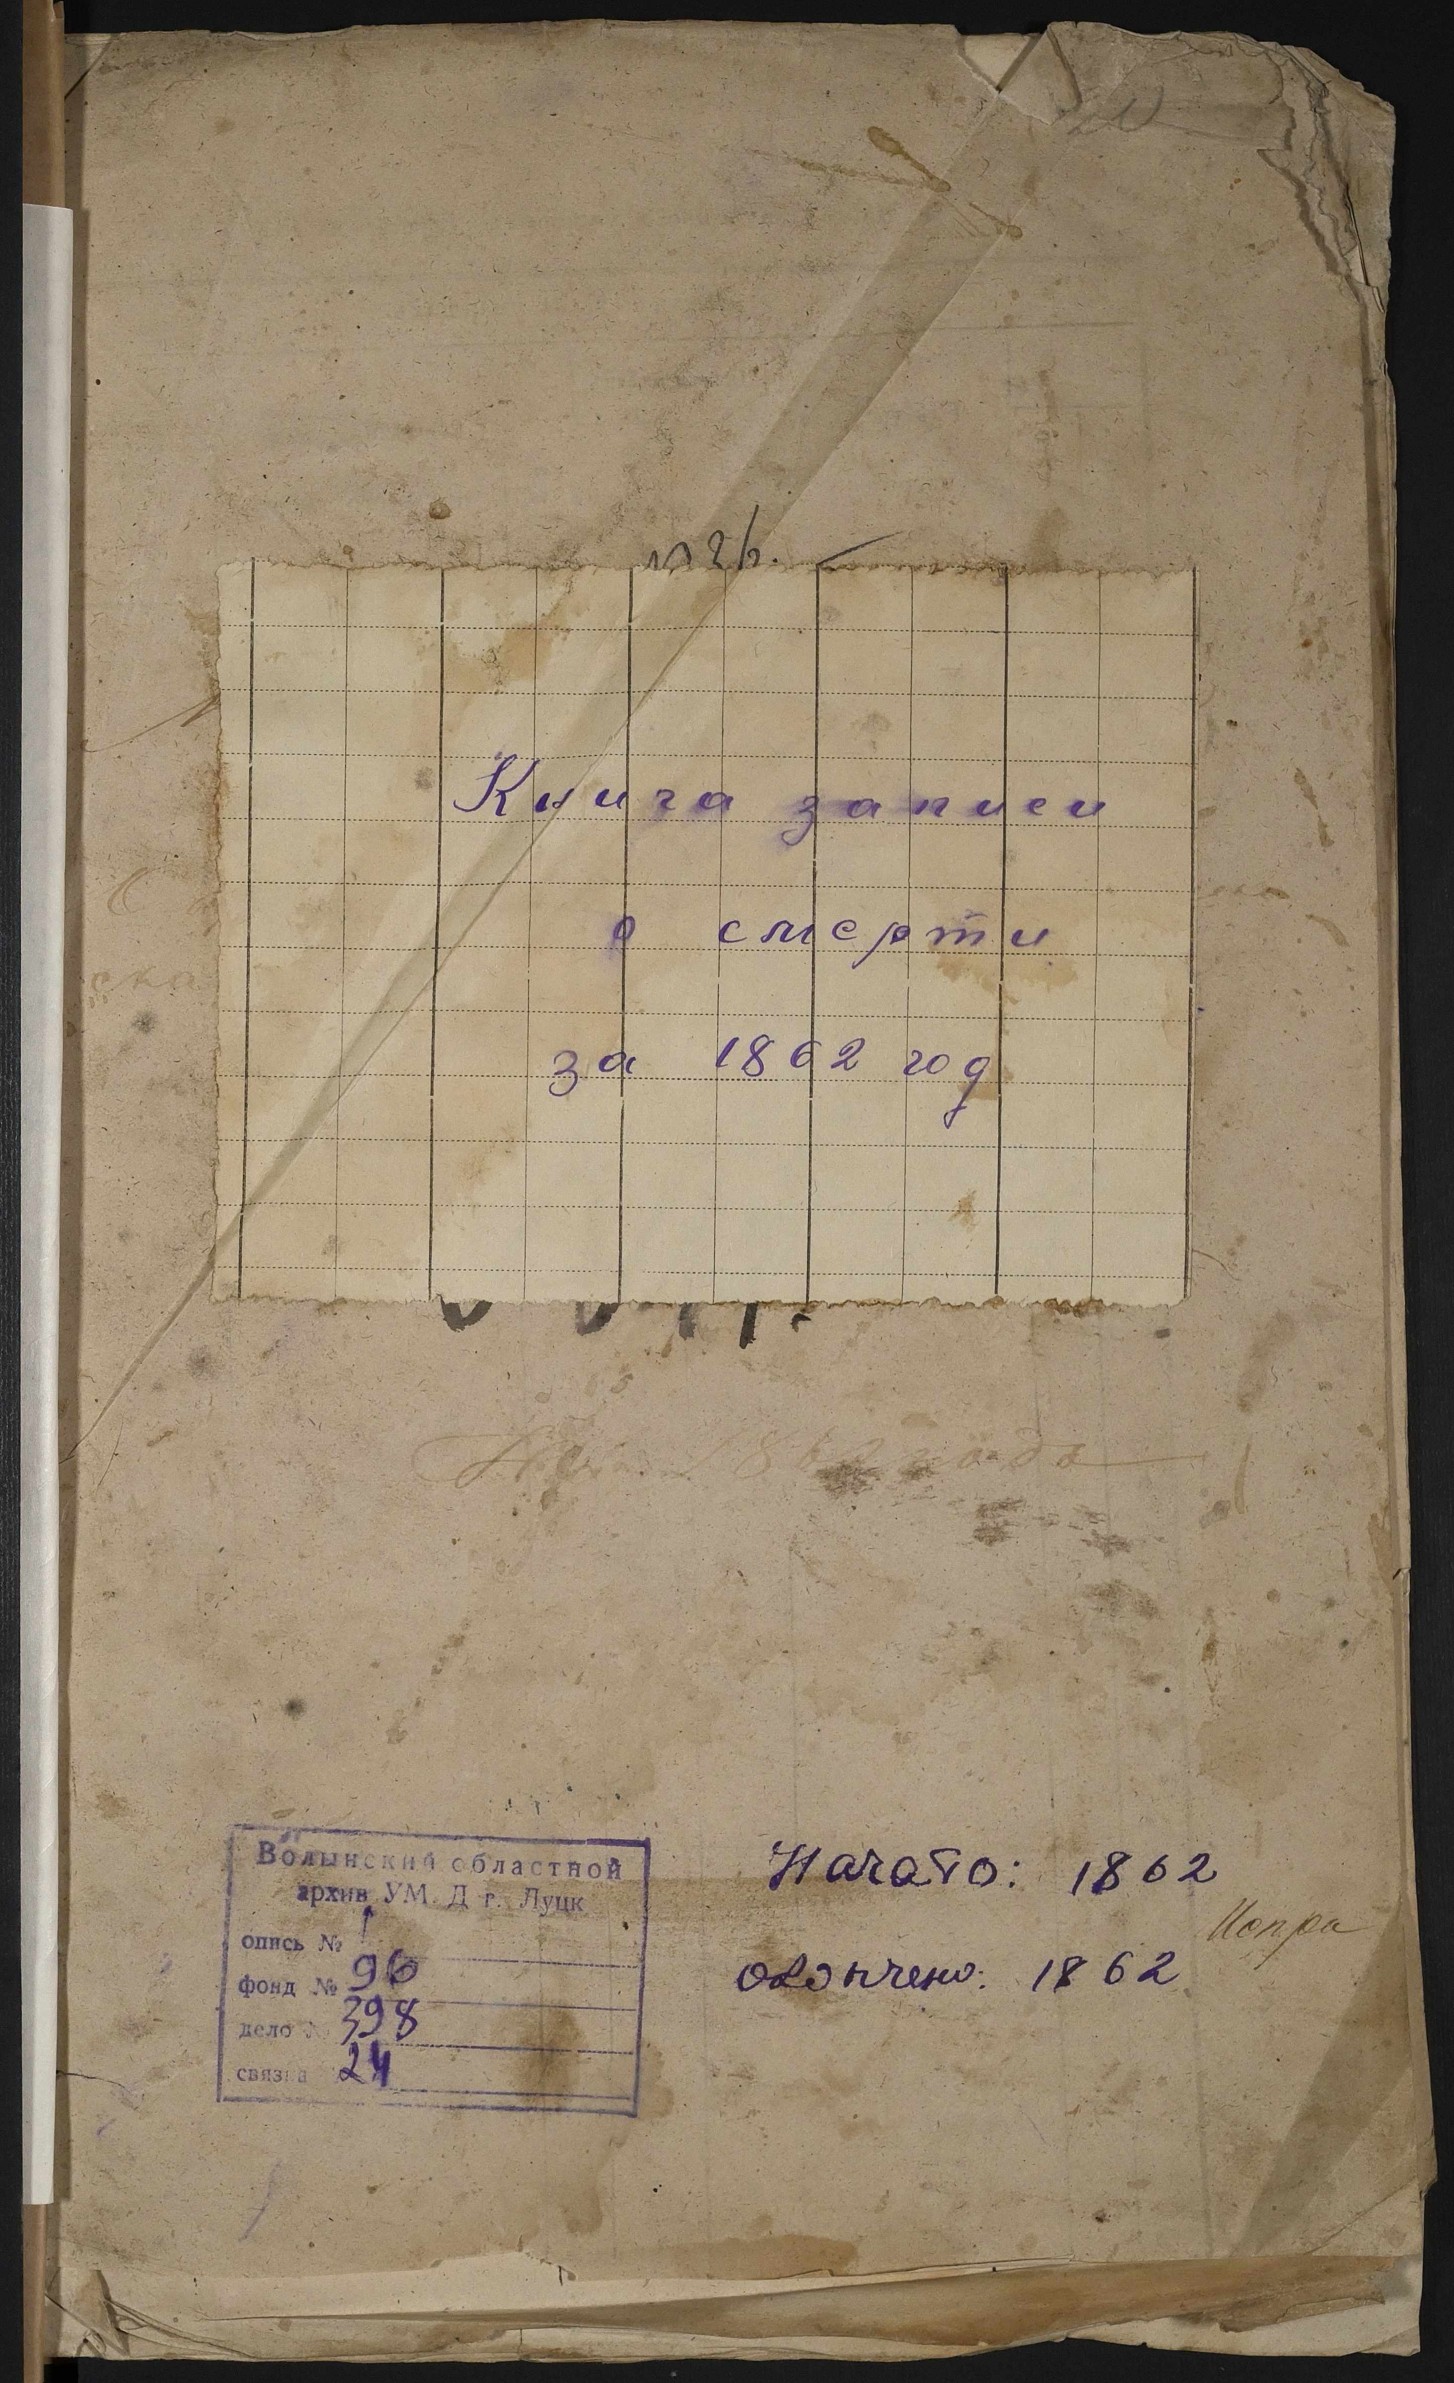 Книга записи
о смерти
за 1862 год
На 1862 года
Волынский областной
архив УМ. Д г. Луцк
опись № 1
фонд № 96
дело № 398
связка 24
Начато: 1862
окончено: 1862
Испра